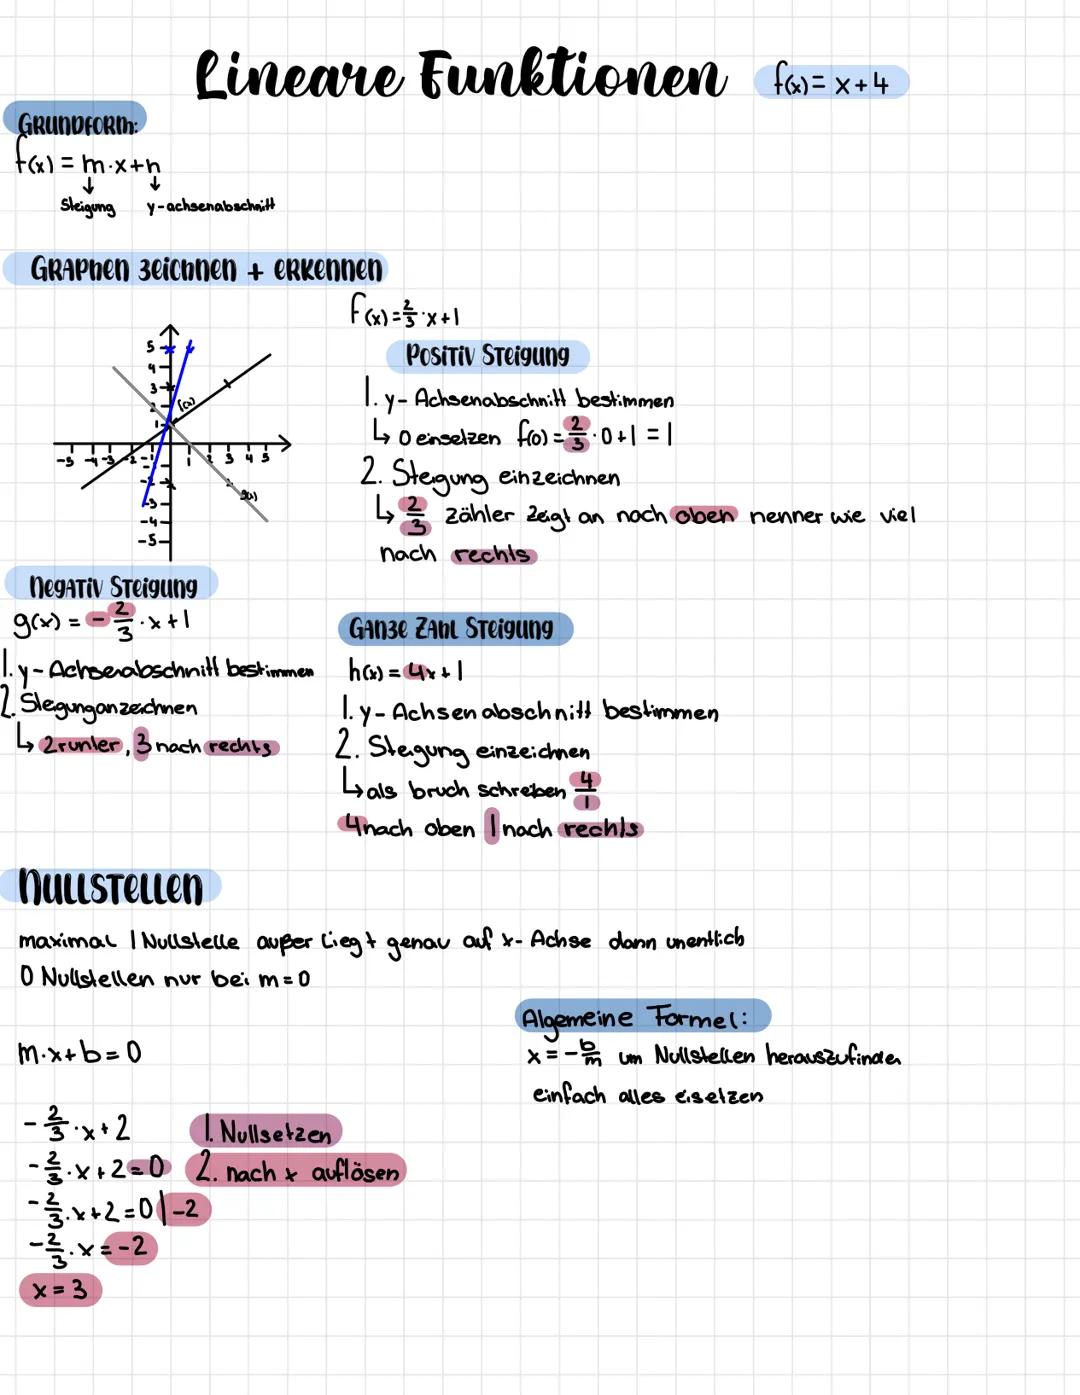 Lineare Funktionen f(x) = x + 4
GRUNDFORM:
f(x) = m·x+n
↓ ↓
Steigung y-achsenabschnitt
GRAPHEN ZEICHNEN + ERKENNEN
f(x) = 2/3 · x + 1
5
4
3
2
1
f(x)
-5 -4 -3 -2 -1 1 2 3 4 5
g(x)
-3
-4
-5
POSITIV STEIGUNG
1. y-Achsenabschnitt bestimmen
↳ 0 einsetzen f(0) = 2/3 · 0 + 1 = 1
2. Steigung einzeichnen
↳ 2/3 zähler zeigt an nach oben nenner wie viel
nach rechts
NEGATIV STEIGUNG
g(x) = - 2/3 · x + 1
1. y-Achsenabschnitt bestimmen
2. Stegunganzeichnen
↳ 2 runter, 3 nach rechts
GANZE ZAHL STEIGUNG
h(x) = 4x + 1
1. y-Achsenabschnitt bestimmen
2. Stegung einzeichnen
↳ als bruch schreiben 4/1
4 nach oben 1 nach rechts
NULLSTELLEN
maximal 1 Nullstelle außer liegt genau auf x-Achse dann unentlich
0 Nullstellen nur bei m = 0
m·x+b = 0
Algemeine Formel:
x = - b/m um Nullstellen herauszufinden
einfach alles eisetzen
- 2/3 · x + 2 1. Nullsetzen
- 2/3 · x + 2 = 0 2. nach x auflösen
- 2/3 · x + 2 = 0 | -2
- 2/3 · x = -2
x = 3